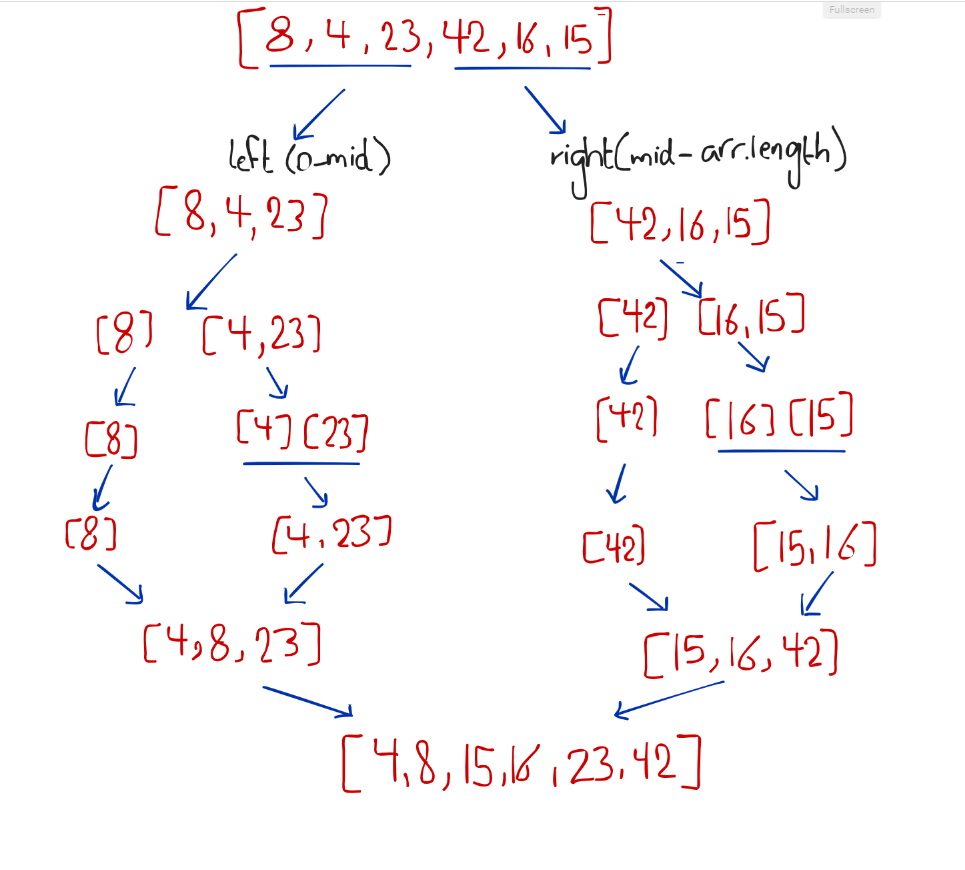 Fullscreen
[8,4,23,42,16,15]
left (0-mid)
right(mid-arr.length)
[8,4,23]
[42,16,15]
[8] [4,23]
[42] [16,15]
[8] [4] [23]
[42] [16] [15]
[8] [4,23]
[42] [15,16]
[4,8,23]
[15,16,42]
[4,8,15,16,23,42]